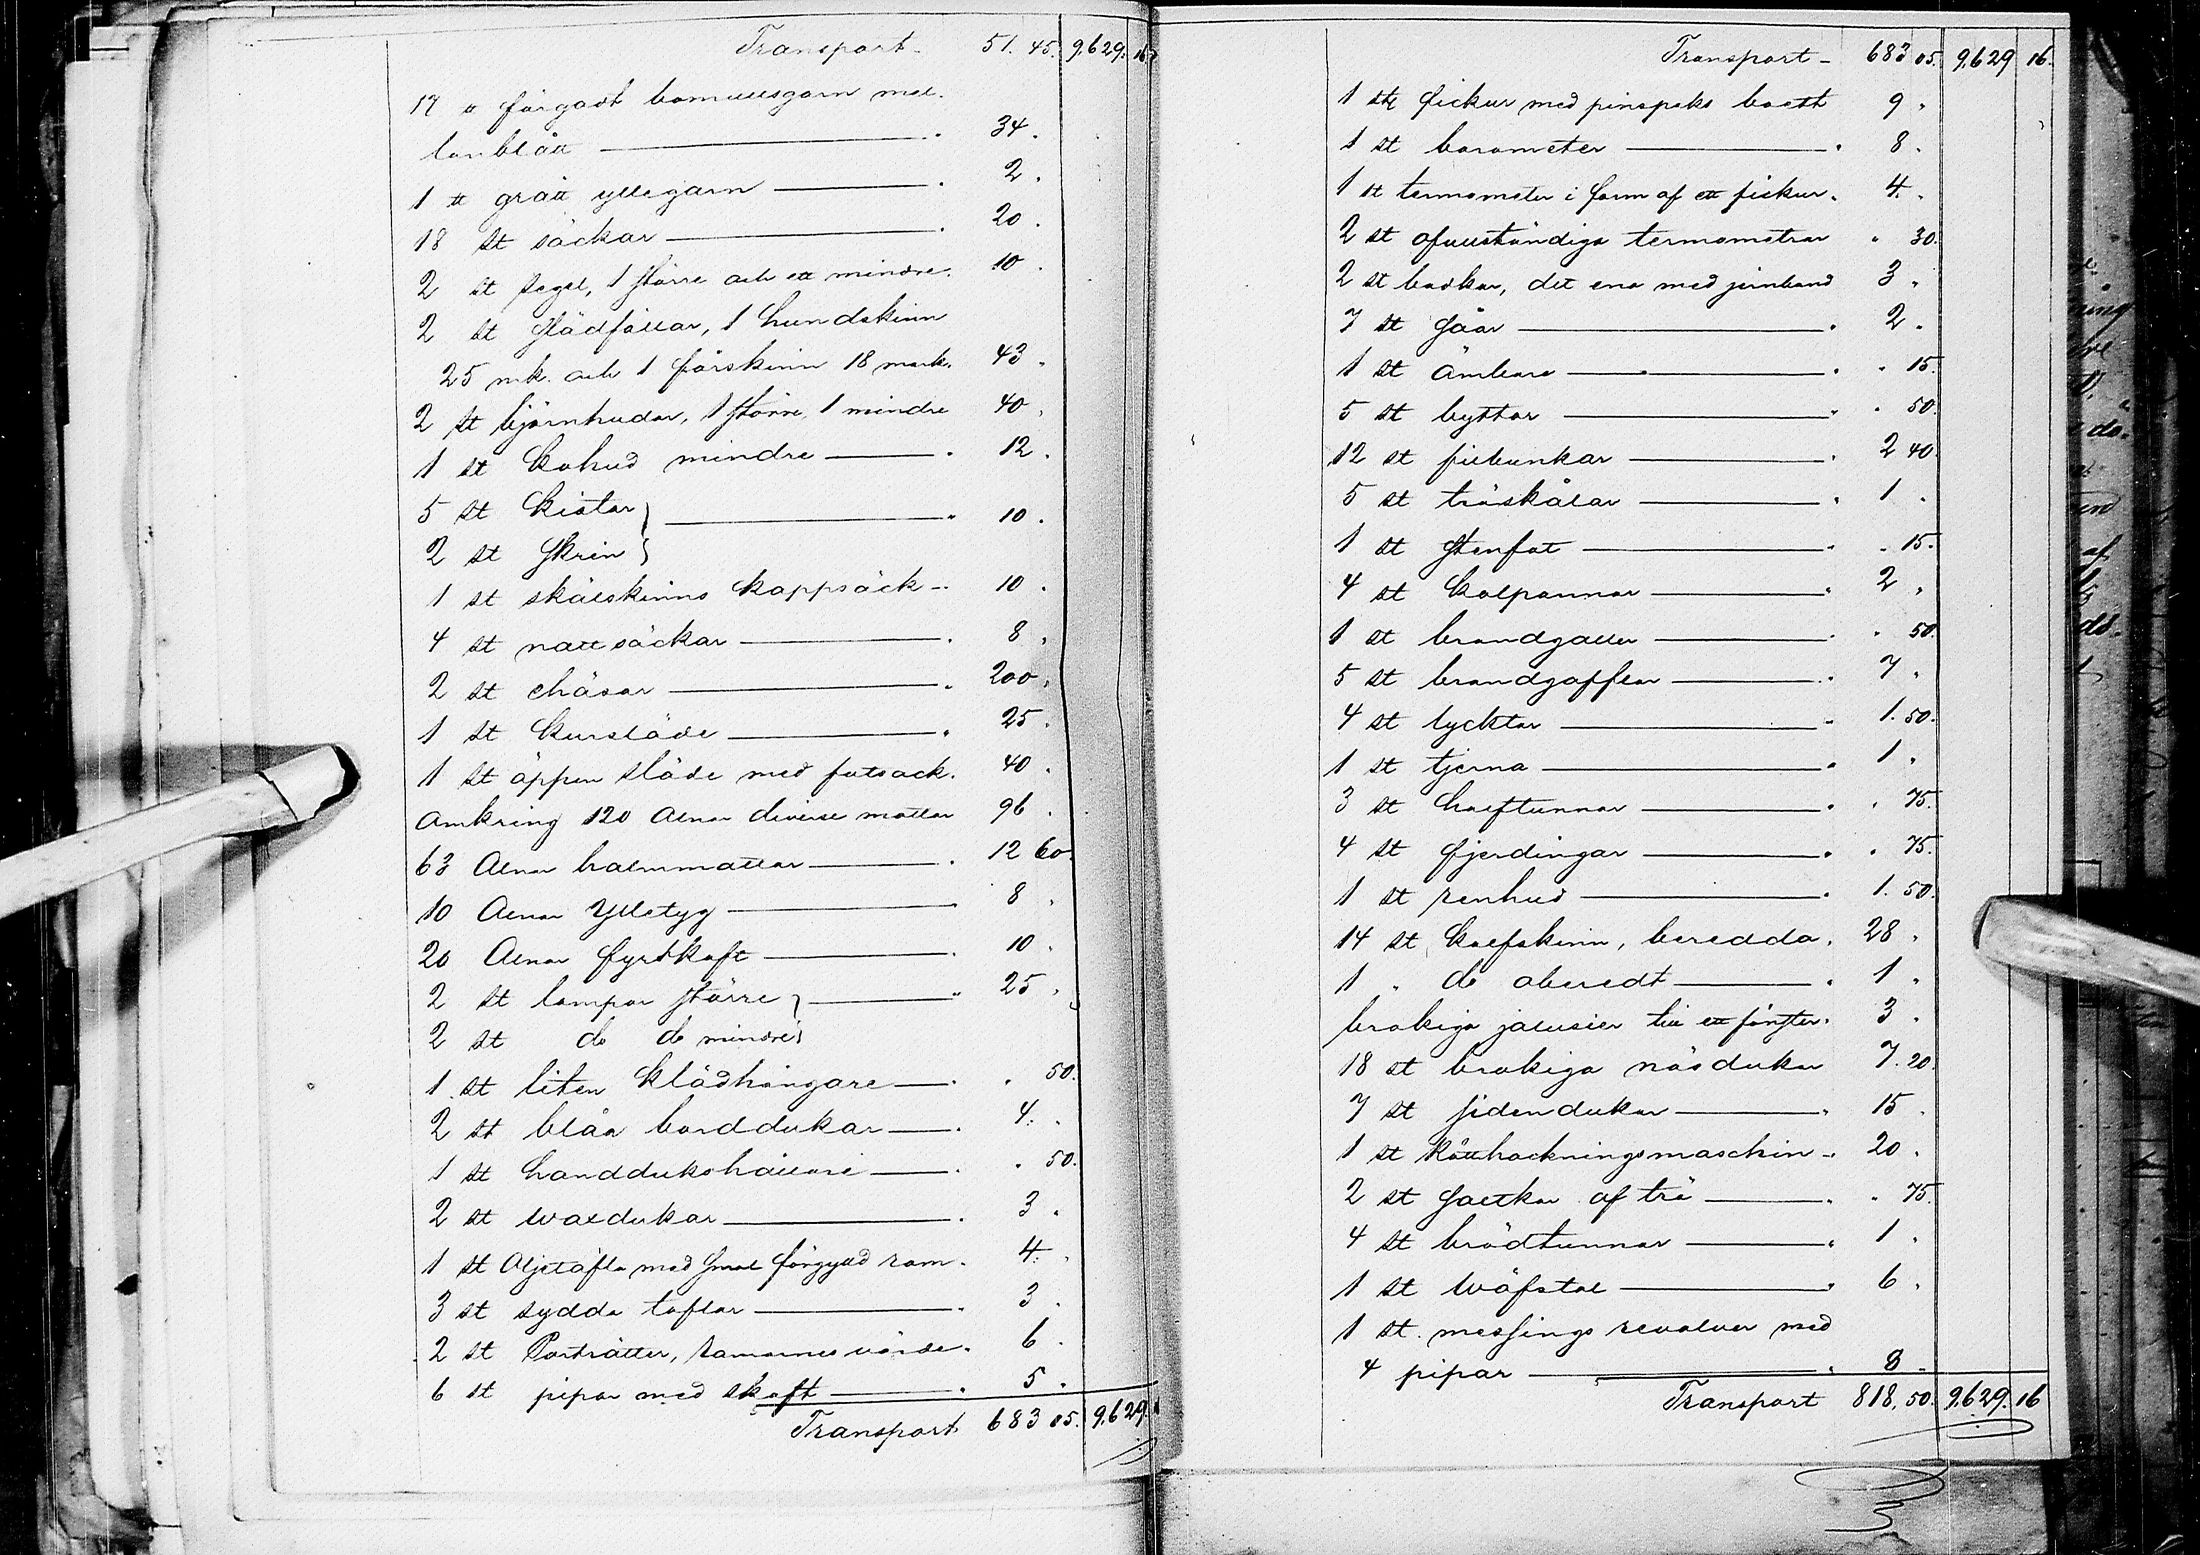 Transport. 51. 45. 9,629. 16
17 ℔ färgadt bomullsgarn mel-
lanblått — " 34.
1 ℔ grått yllegarn — " 2.
18 st säckar — " 20.
2 st segel, 1 större och ett mindre. 10.
2 st slädfällar, 1 hundskinn
25 mk. och 1 fårskinn 18 mark. 43.
2 st björnhudar, 1 större, 1 mindre 40.
1 st kohud mindre — " 12.
5 st kistor } — " 10.
2 st skrin }
1 st skälskinns kappsäck — 10.
4 st nattsäckar — " 8.
2 st chäsar — " 200.
1 st kursläde — " 25.
1 st öppen släde med fotsack. 40.
Omkring 120 Alnar diverse mattor 96.
63 Alnar halmmattor — " 12 60.
10 Alnar Ylletyg — " 8.
20 Alnar fyrskaft — " 10.
2 st lampor större } — " 25.
2 st do do mindre }
1 st liten klädhängare — " . 50.
2 st blåa borddukar — " 4. .
1 st handdukshållare — " . 50.
2 st vaxdukar — " 3.
1 st Oljetafla med smal förgylld ram. 4. .
3 st sydda taflor — " 3.
2 st Porträtter, ramarnes värde. 6.
6 st pipor med skaft — " 5.
Transport 683 05. 9,629.
Transport — 683 05. 9,629 16.
1 st fickur med pinspeks boett 9.
1 st barometer — " 8.
1 st termometer i form af ett fickur. 4. .
2 st ofullständiga termometrar " 30.
2 st badkar, det ena med jernband 3.
7 st såar — " 2.
1 st ämbare — " . 15.
5 st byttor — " . 50.
12 st filbunkar — " 2 40.
5 st träskålar — " 1.
1 st stenfat — " . 15.
4 st kolpannor — " 2.
1 st brandgaller — " . 50.
5 st brandgafflar — " 7.
4 st lycktor — " 1. 50.
1 st tjerna — " 1.
3 st halftunnor — " . 75.
4 st fjerdingar — " . 75.
1 st renhud — " 1. 50.
14 st kalfskinn, beredda. 28.
1 " do oberedt — " 1.
brokiga jalusier till ett fönster. 3.
18 st brokiga näsdukar 7. 20.
7 st sidendukar — " 15.
1 st Kötthackningsmaschin — 20.
2 st saltkar af trä — " . 75.
4 st brödtunnor — " 1.
1 st wäfstol — " 6.
1 st. messings revolver med
4 pipor — " 8.
Transport 818. 50. 9,629. 16